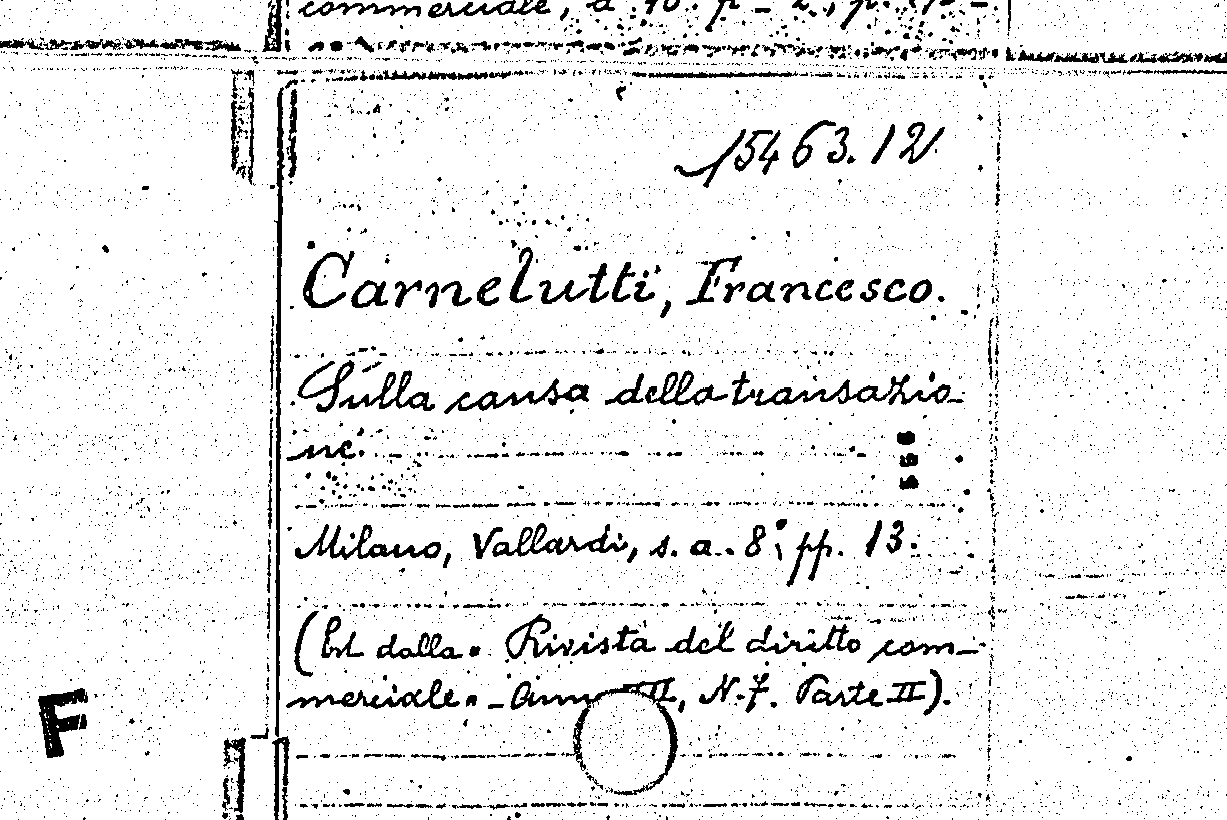 commerciale, a
15463.12
Carnelutti, Francesco.
Sulla causa della transazio-
ne.
Milano, Vallardi, s. a. 8°, pp. 13.
(Est. dalla « Rivista del diritto com-
merciale » - Anno II, N. 7. Parte II).
F